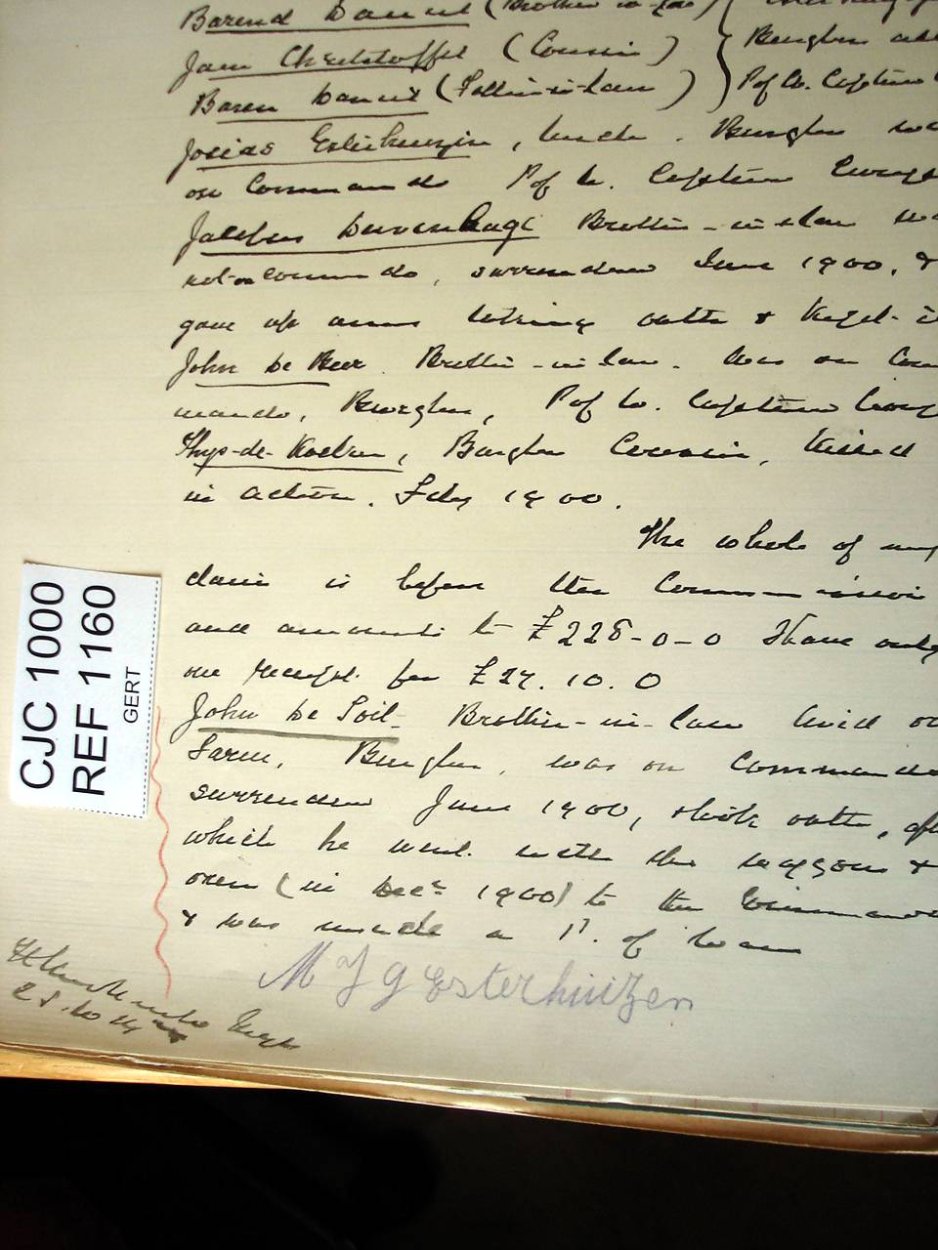 Barend (Brother-in-law)
Jan Christoffel (Cousin) Burgher
Baren (Father-in-Law) P of W. Capture
Josias Esterhuizen, Uncle. Burgher was
on Commando P of W. Capture
Jacobus Duvenhage Brother-in-law was
not on commando, surrendered June 1900, &
gave up arms taking oath & kept it
John de Beer. Brother-in-law. Was on Com
mando, Burgher, P of W. Capture
Thys-de-, Burgher Cousin, Killed
in action. July 1900.
The whole of my
claim is before the Commission
and amounts to £228-0-0 I have only
one receipt for £27.10.0
John de Brother-in-law lived on
farm, Burgher, was on Commando
surrendered June 1900, & took oath, after
which he went with the waggons &
oxen (in Decr 1900) to the Commando
& was made a P. of War
M J G Esterhuizen
CJC 1000
REF 1160
GERT